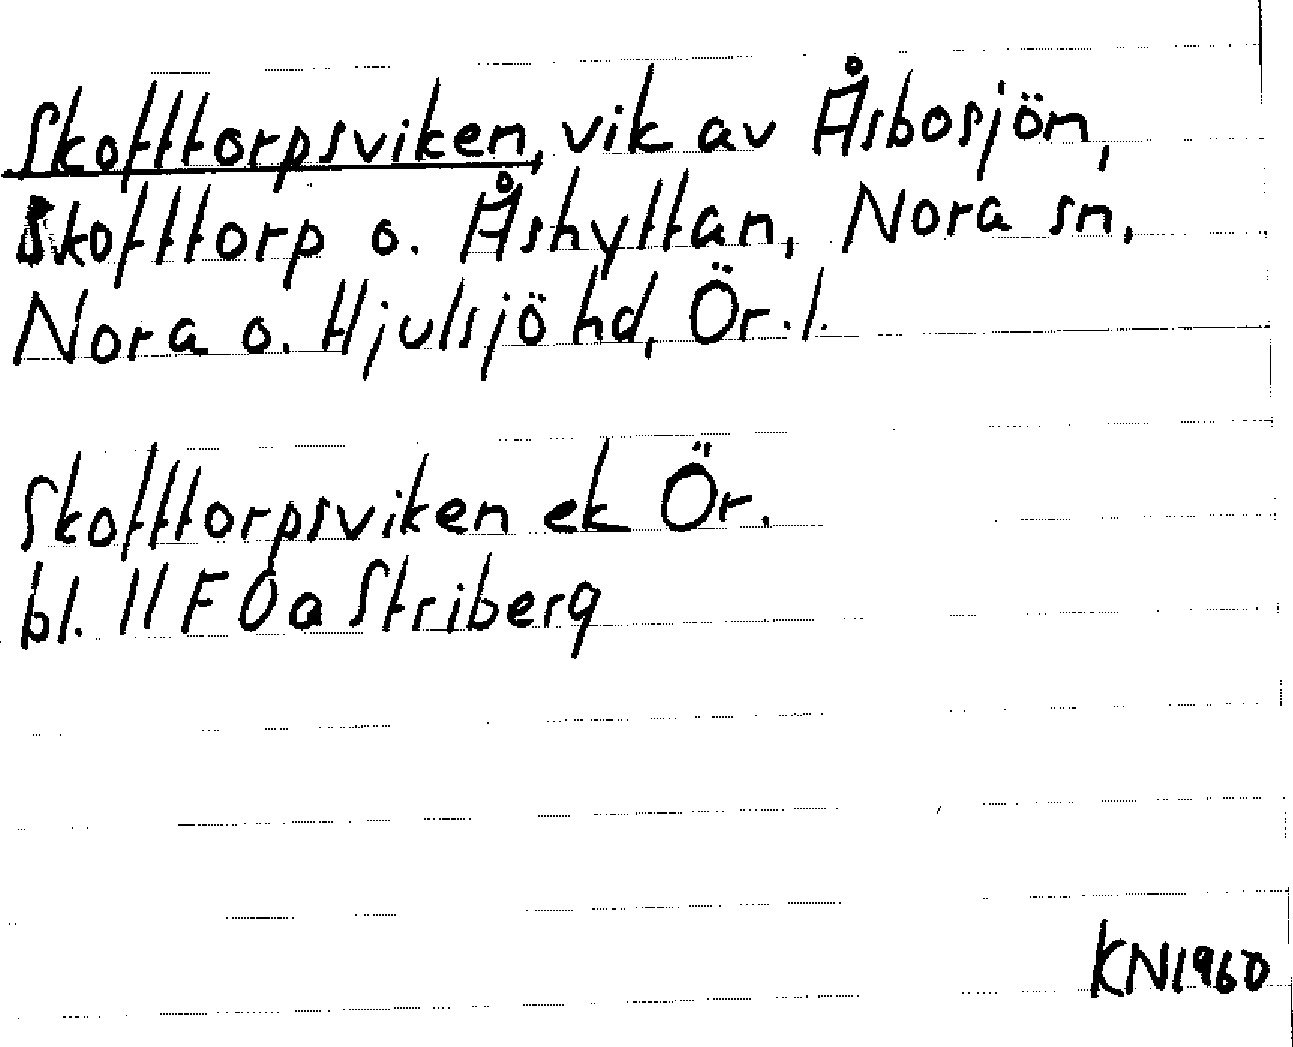 Skofttorpsviken, vik av Åsbosjön,
Skofttorp o. Åshyttan, Nora sn,
Nora o. Hjulsjö hd, Ör. l.
Skofttorpsviken ek Ör.
bl. 11 F 0a Striberg
KN1960